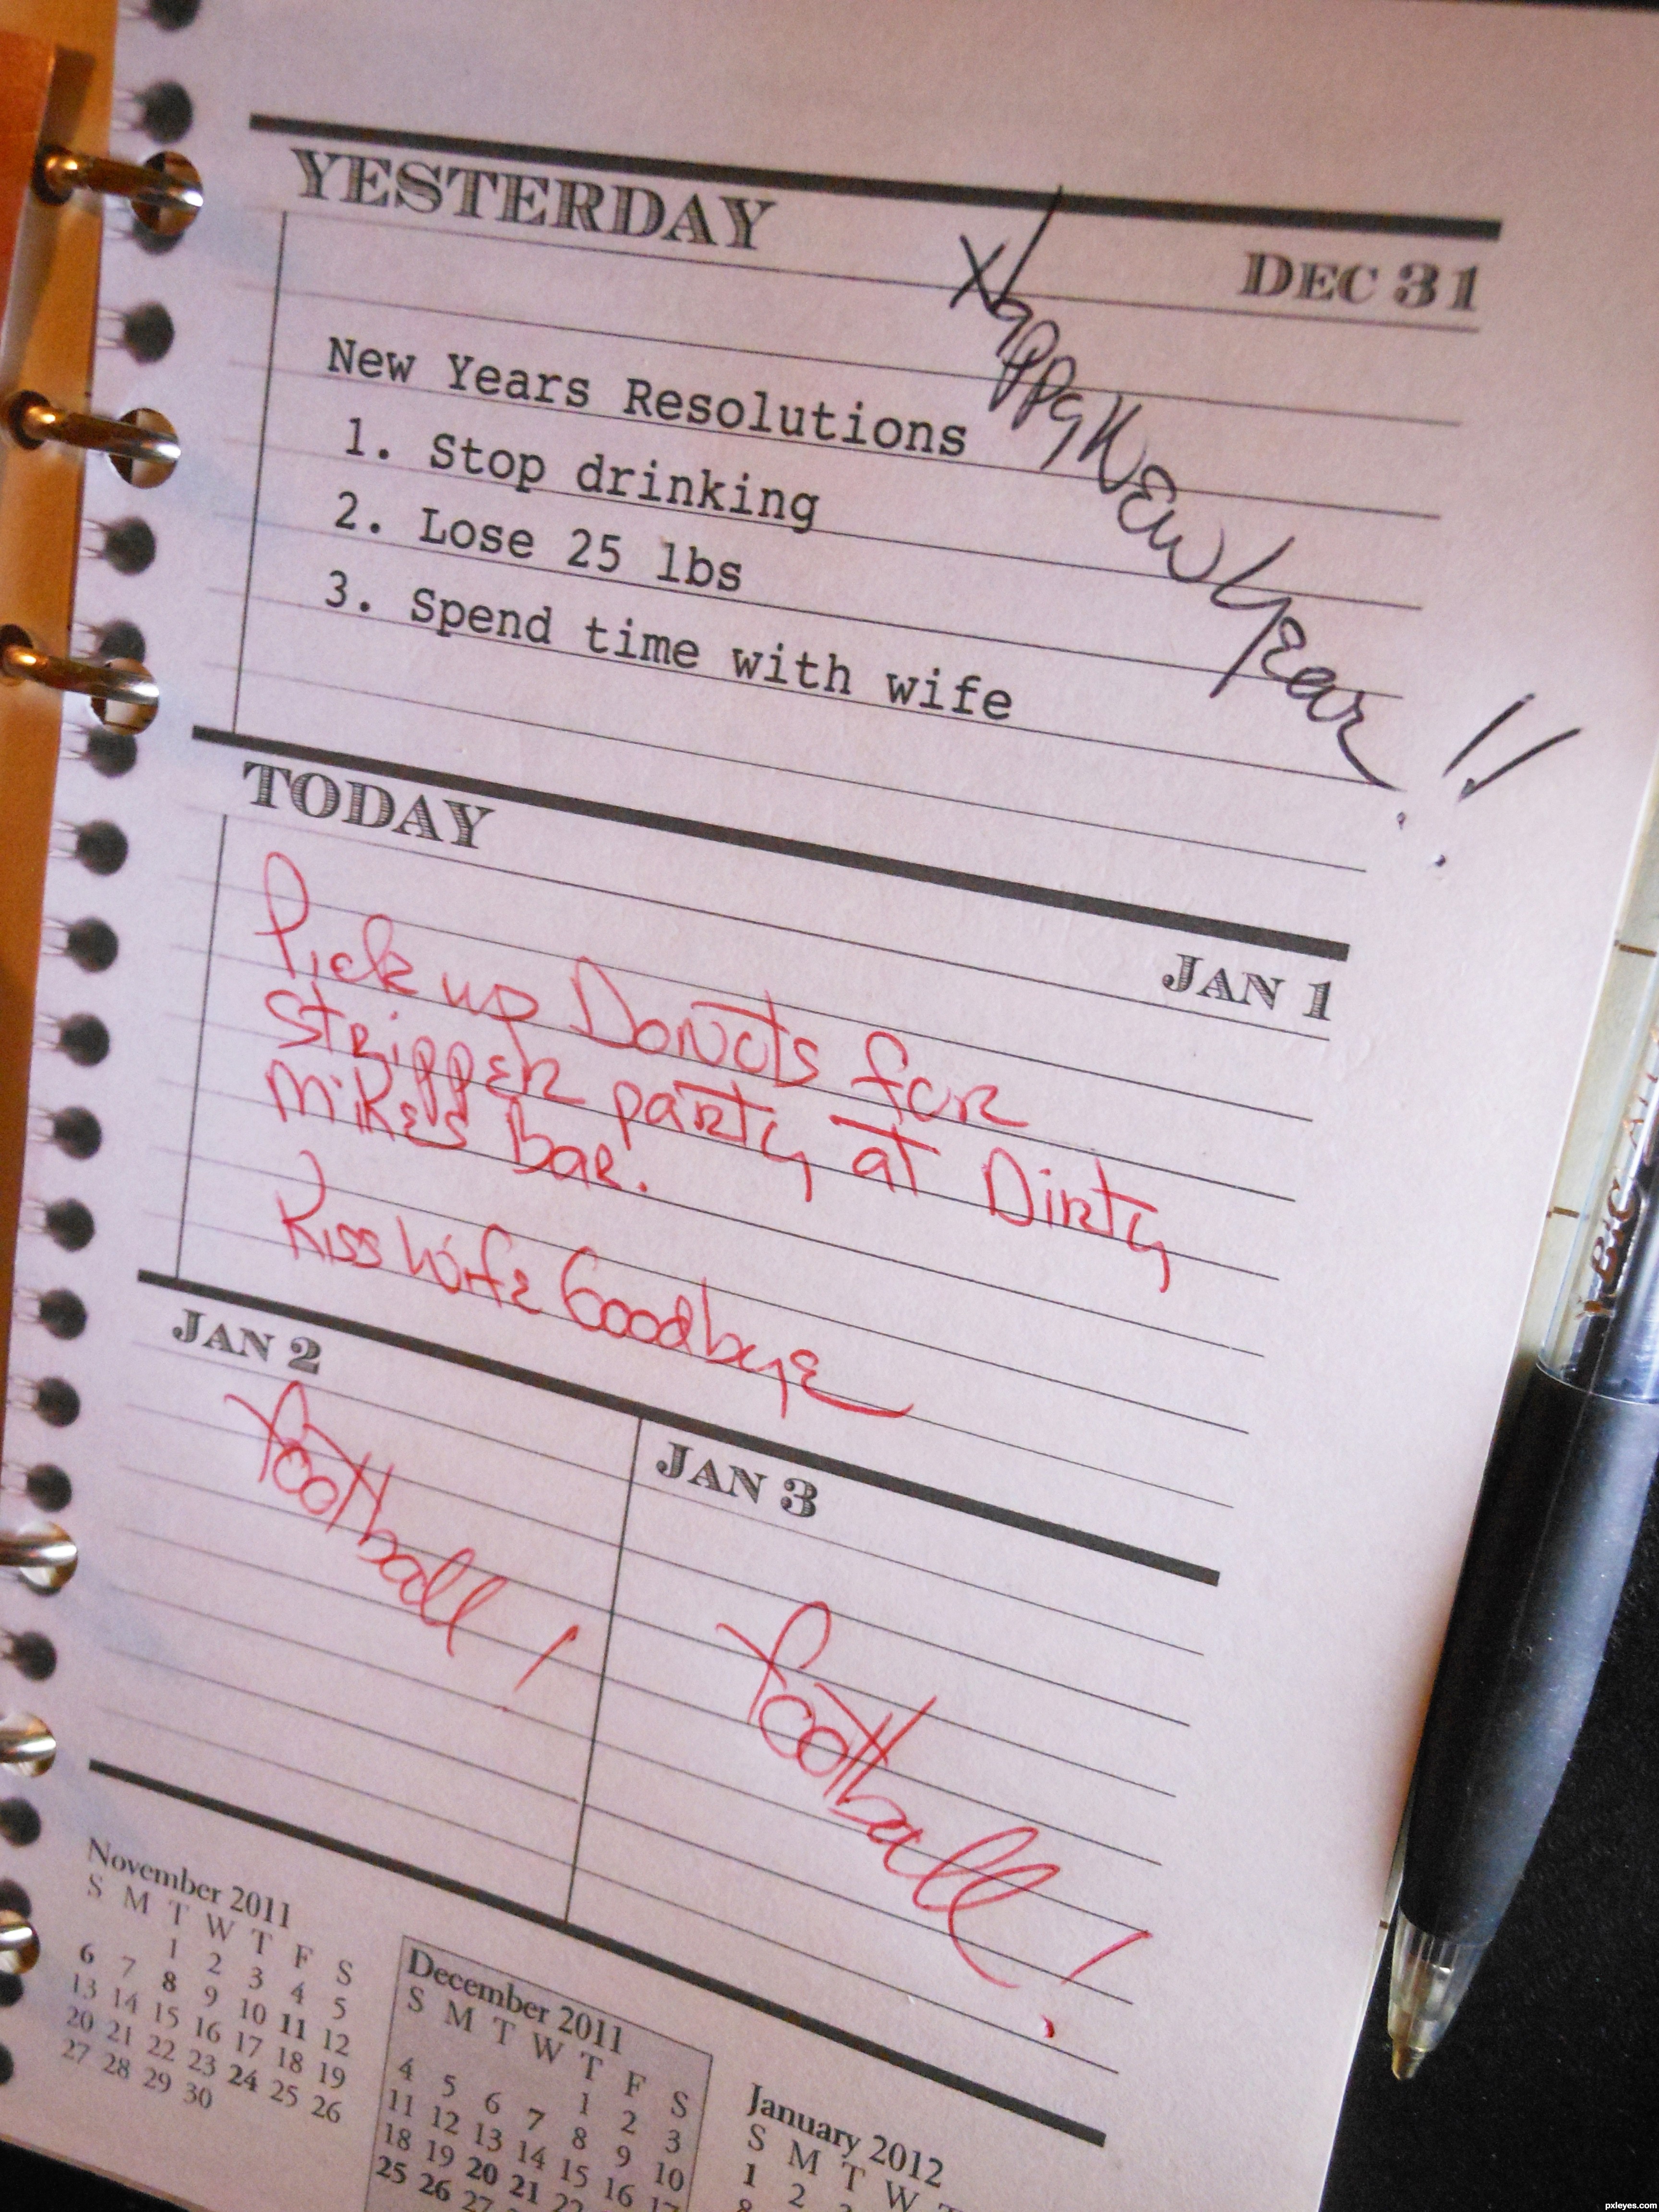 YESTERDAY
DEC 31
Happy New Year!!
New Years Resolutions
1. Stop drinking
2. Lose 25 lbs
3. Spend time with wife
TODAY
JAN 1
Pick up Donuts for
stripper party at Dirty
Mikes Bar.
Kiss Wife Goodbye
JAN 2
football!
JAN 3
football!
November 2011
S M T W T F S
1 2 3 4 5
6 7 8 9 10 11 12
13 14 15 16 17 18 19
20 21 22 23 24 25 26
27 28 29 30
December 2011
S M T W T F S
1 2 3
4 5 6 7 8 9 10
11 12 13 14 15 16 17
18 19 20 21 22
25 26 27
January 2012
S M T W T
1 2
8
BIC
pxleyes.com